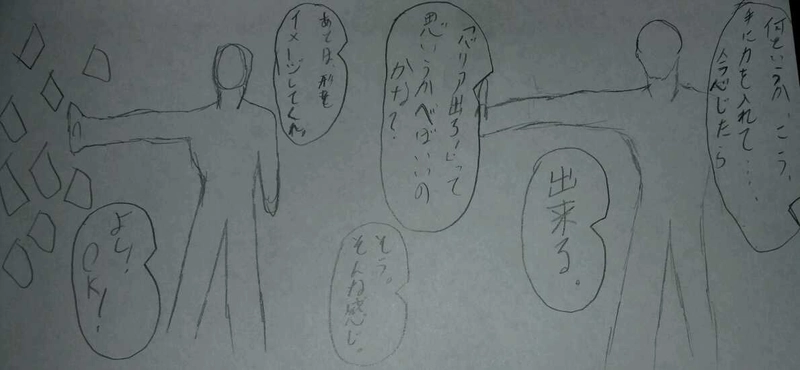 何というか、こう、
手に力を入れて……
念じたら
出来る。
バリア出ろ！って
思いうかべばいいの
かな？
そう。
そんな感じ。
あとは形を
イメージしてくれ。
よし！
OK！